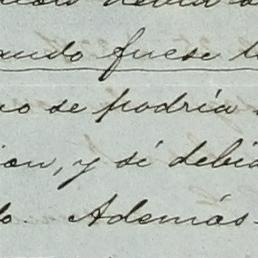 cuando fuese
no se podría
ion, y si debía
do. Además